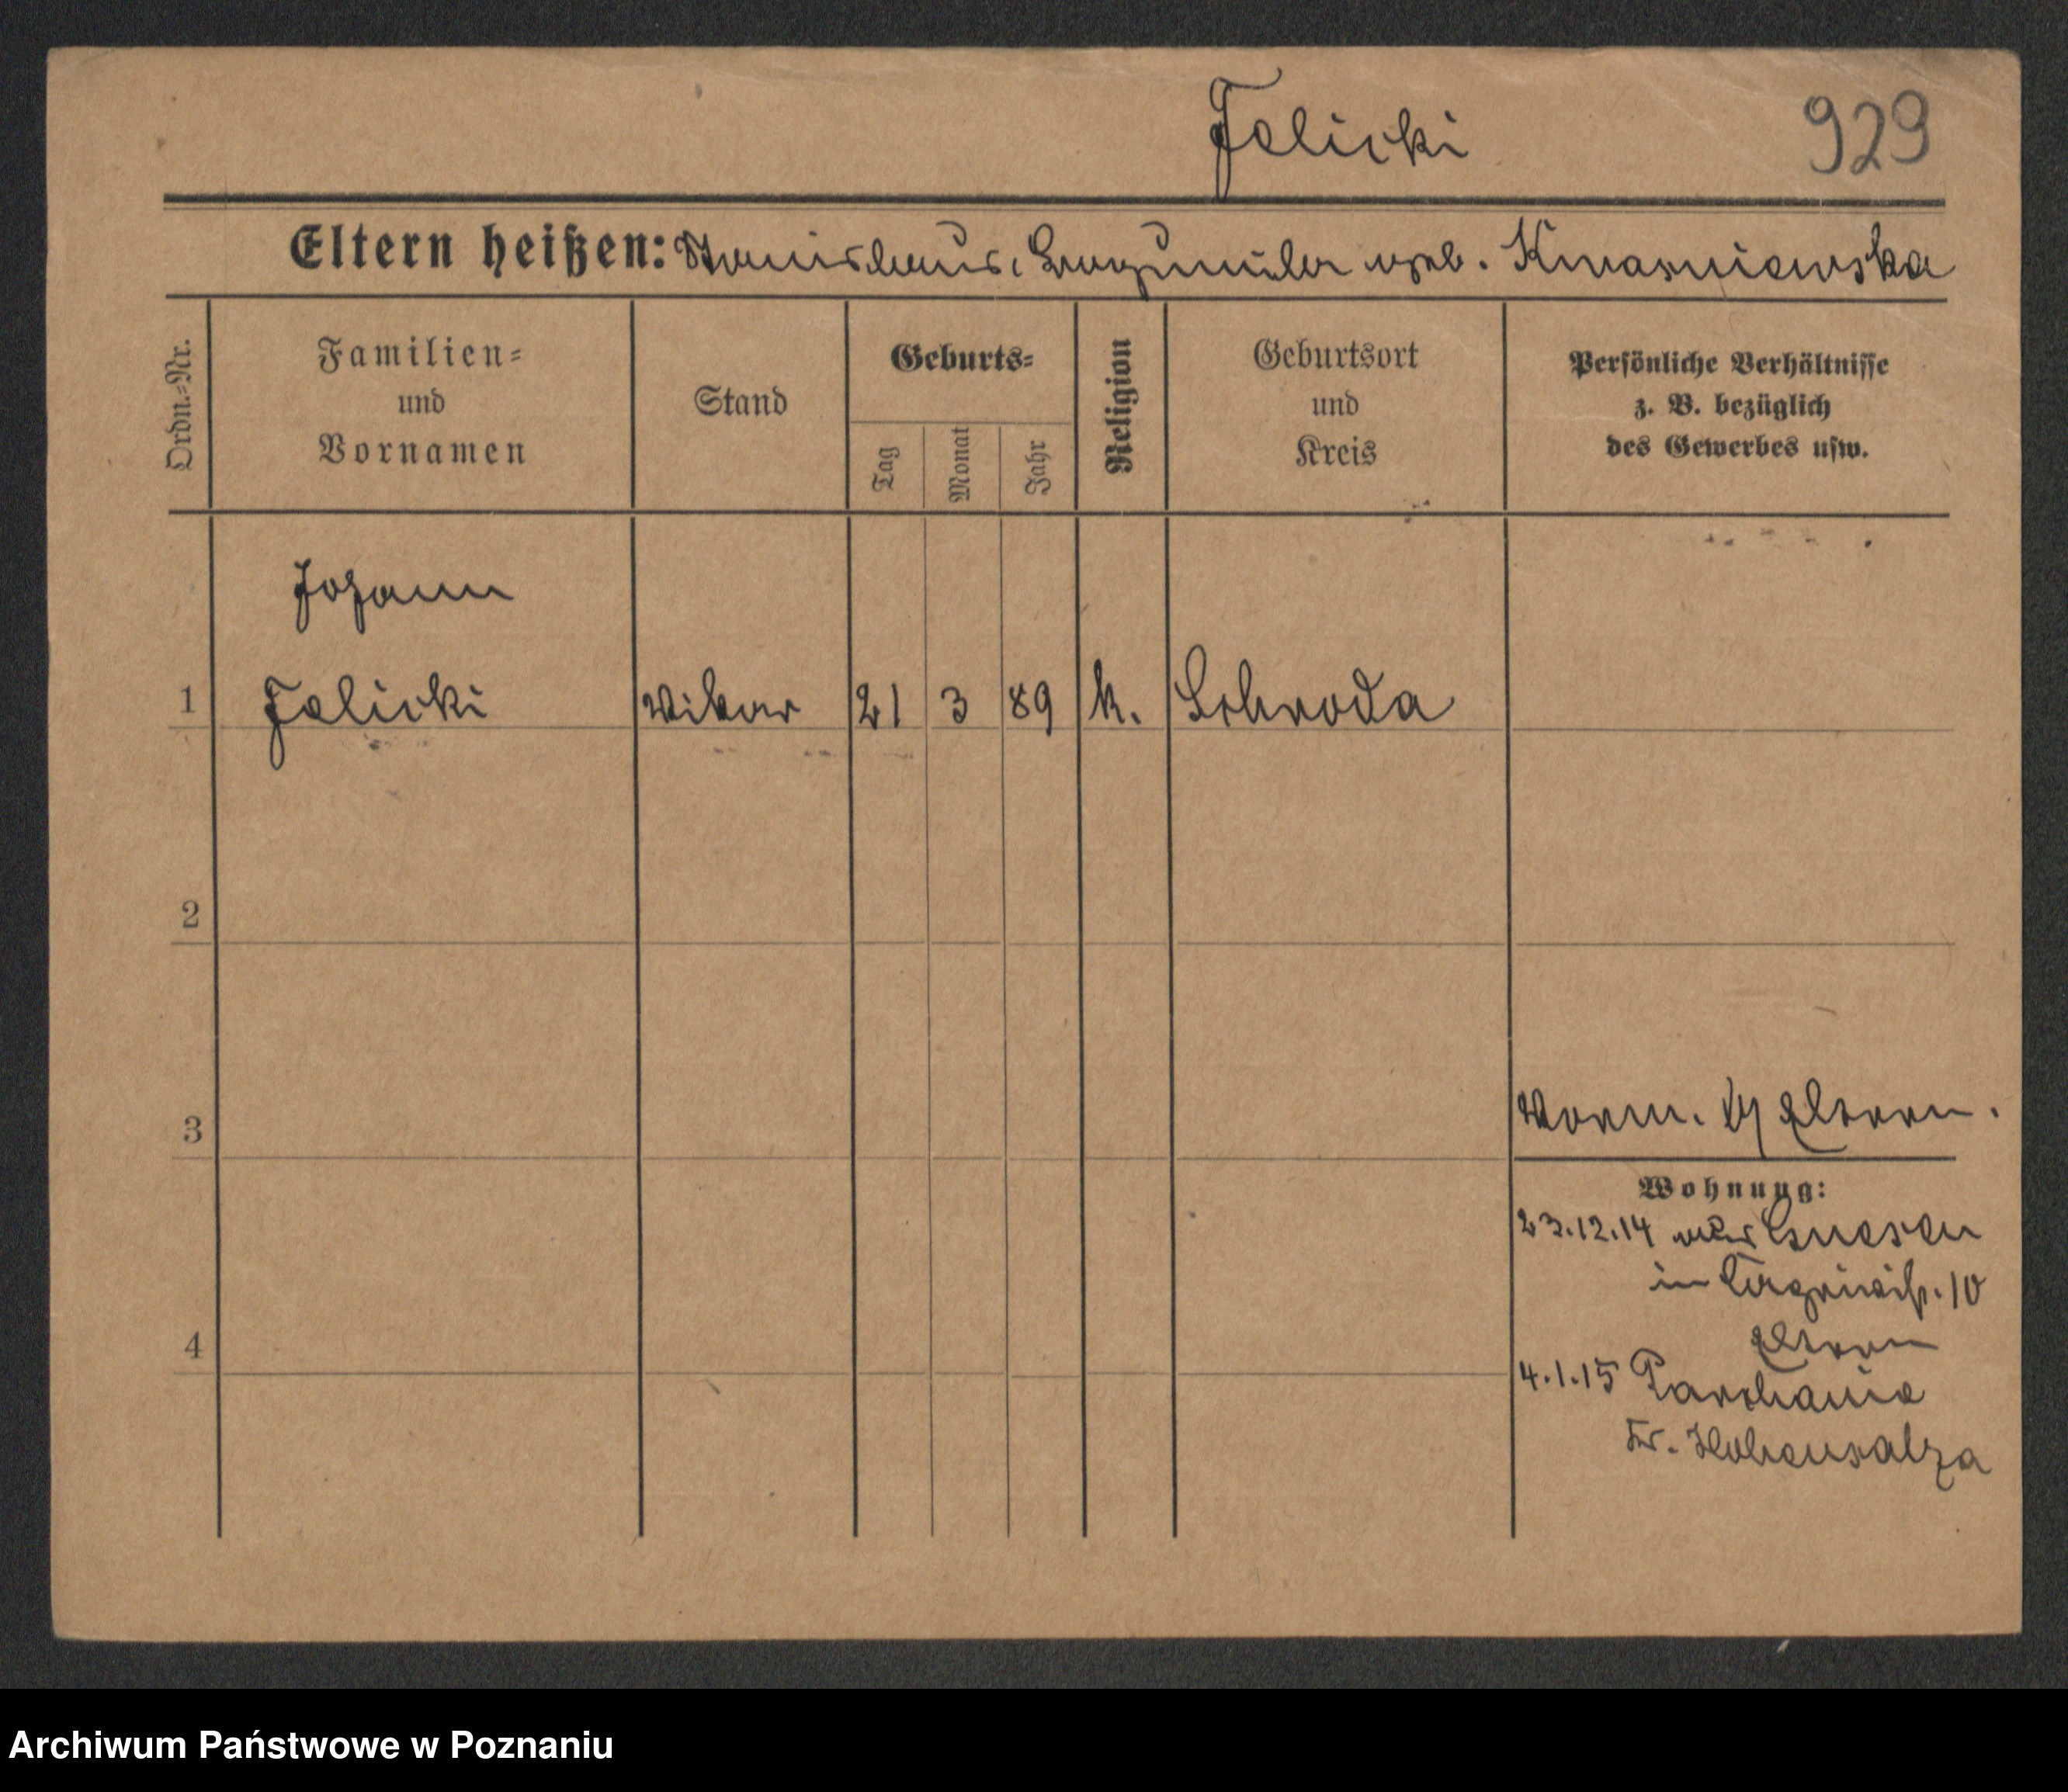 Jelicki 929
Eltern heißen: Stanislaus, geb. Kwasniewska
Ordn.-Nr.
Familien-
und
Vornamen
Stand
Geburts-
Tag
Monat
Jahr
Religion
Geburtsort
und
Kreis
Persönliche Verhältnisse
z. B. bezüglich
des Gewerbes usw.
Johann
1 Jelicki Vikar 21 3 89 k. Schroda
2
3
Eltern.
Wohnung:
23.12.14 Gnesen
in 10
Eltern
4
4.1.15 Parchanie
Kr. Hohensalza
Archiwum Państwowe w Poznaniu